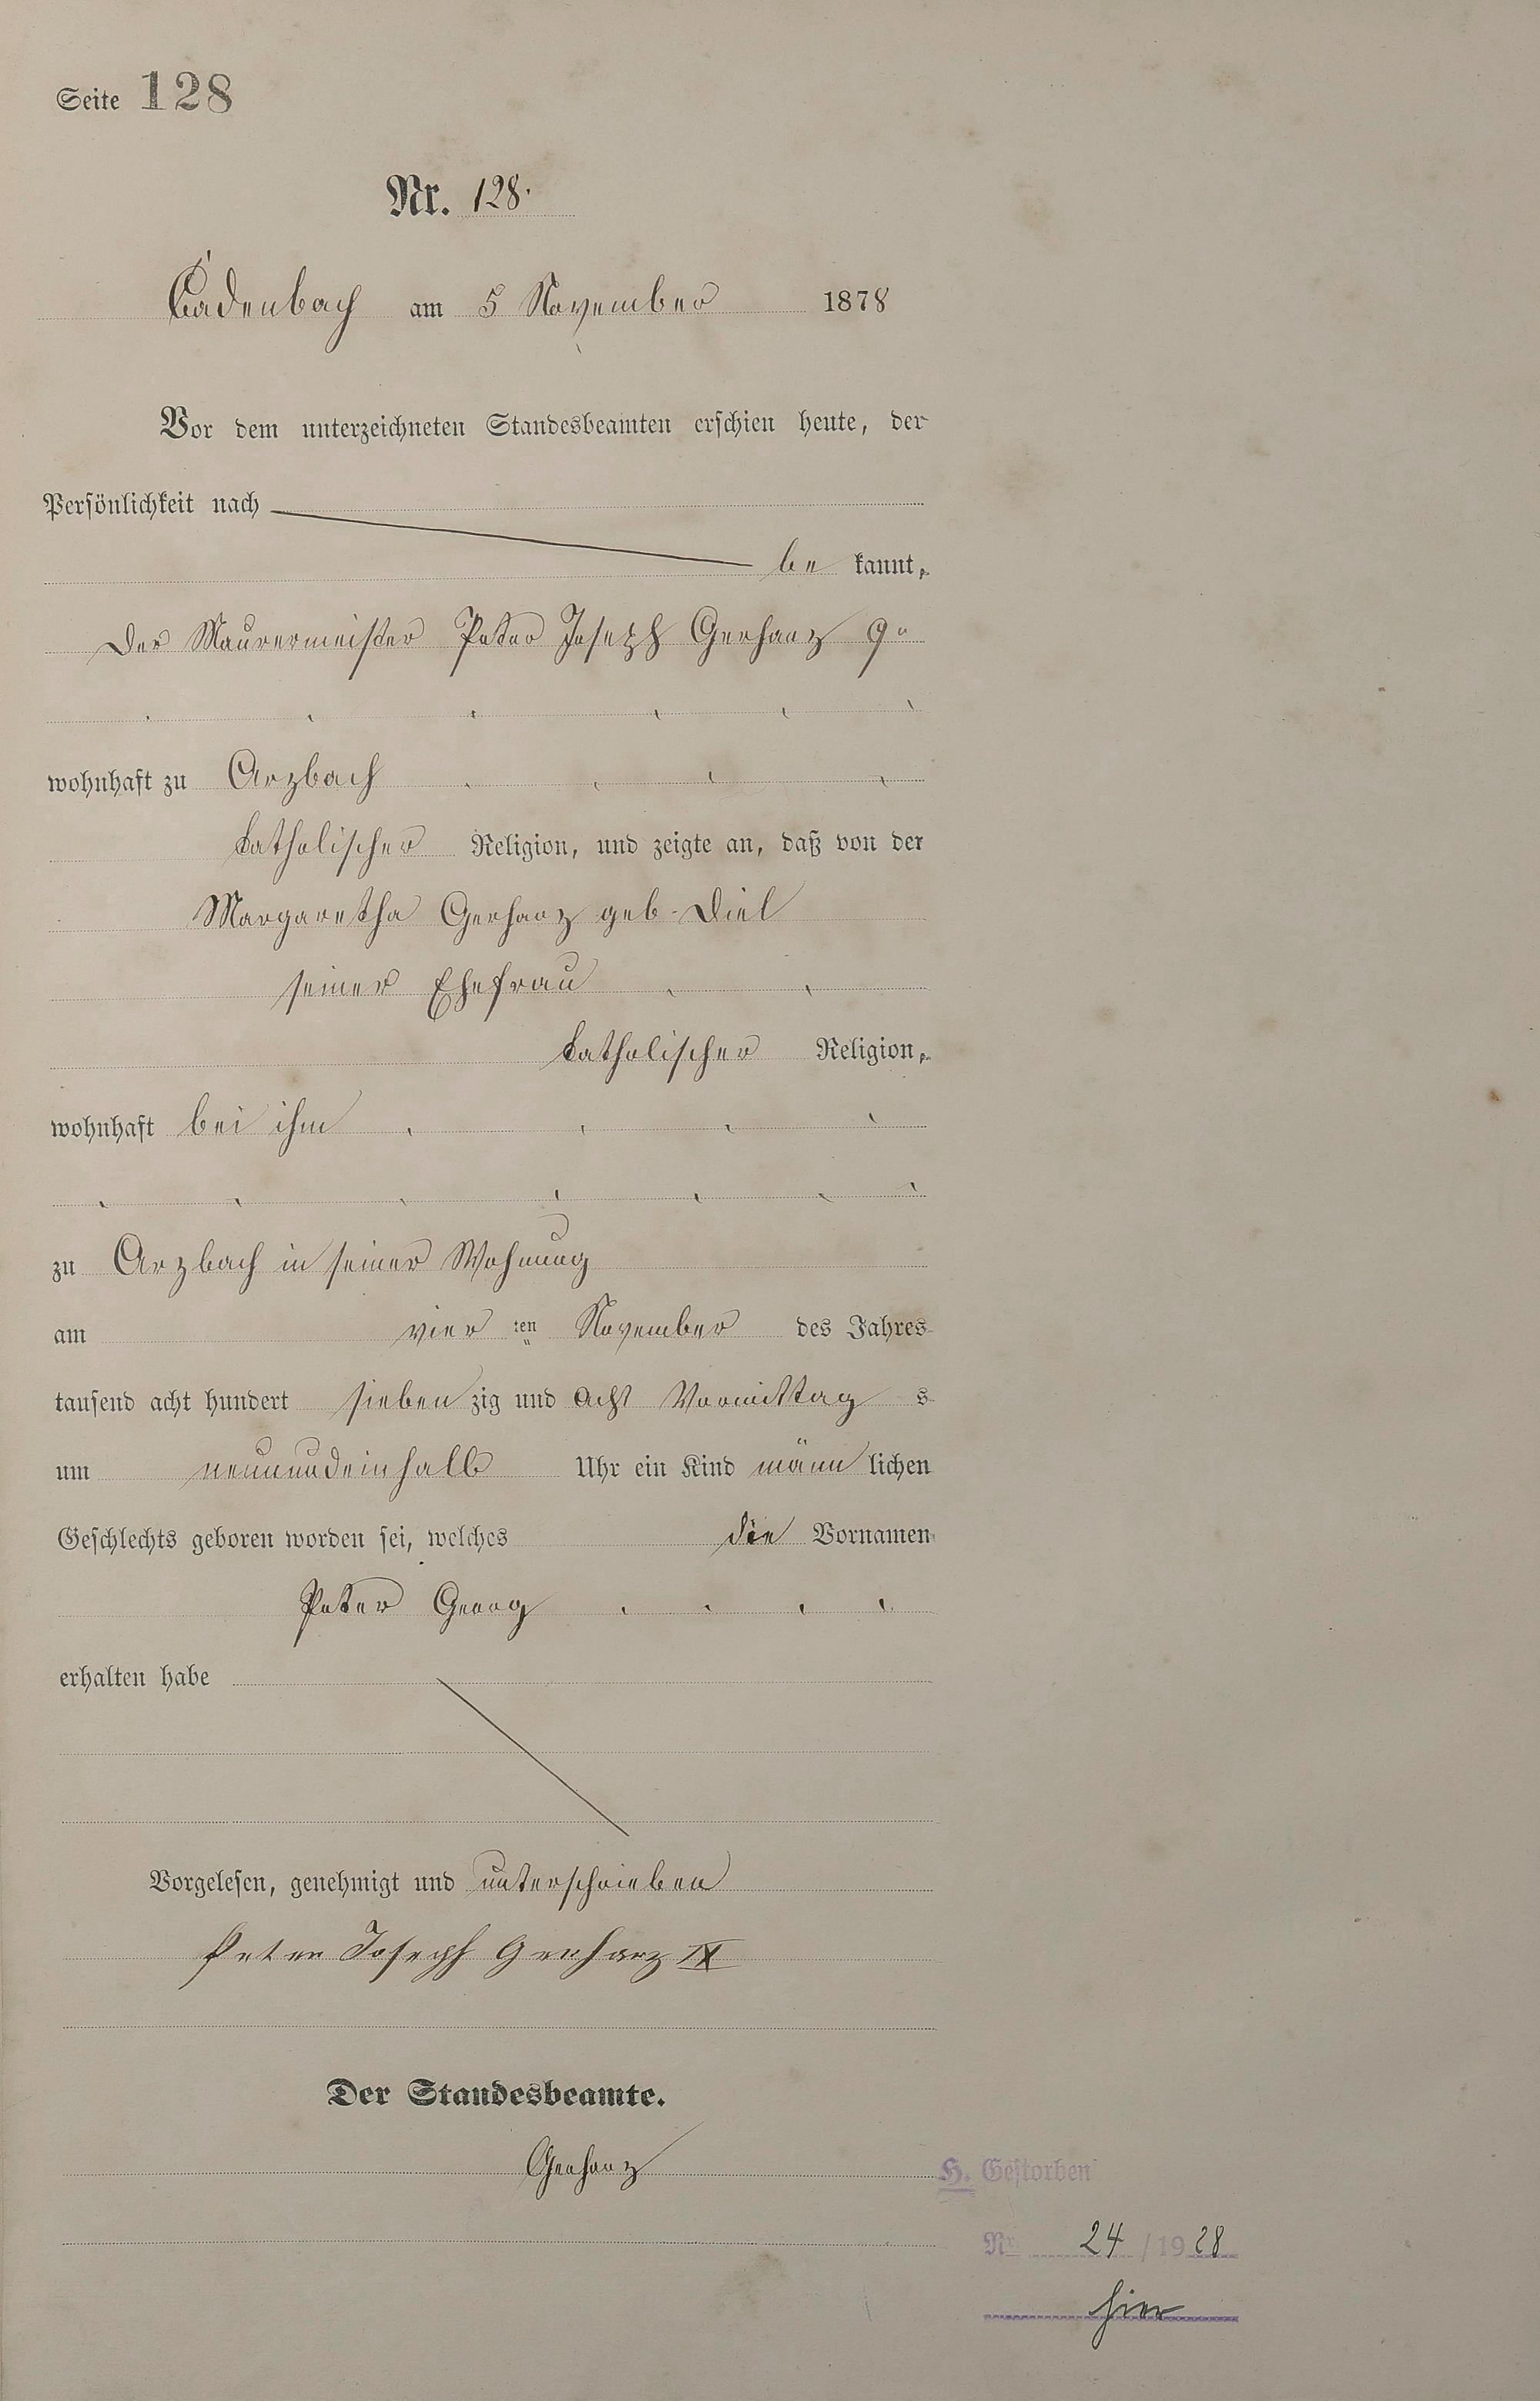 Seite 128
Nr. 128.
Cadenbach am 5 November 1878
Vor dem unterzeichneten Standesbeamten erschien heute, der
Persönlichkeit nach
be kannt,
Der Maurermeister Peter Joseph Gerharz 9r
wohnhaft zu Arzbach
katholischer Religion, und zeigte an, daß von der
Margaretha Gerharz geb. Diel
seiner Ehefrau
katholischer Religion,
wohnhaft bei ihm
zu Arzbach in seiner Wohnung
am vier ten November des Jahres
tausend acht hundert sieben zig und acht Vormittag s
um neunundeinhalb Uhr ein Kind männ lichen
Geschlechts geboren worden sei, welches die Vornamen
Peter Georg
erhalten habe
Vorgelesen, genehmigt und unterschrieben
Peter Joseph Gerharz IX
Der Standesbeamte.
Gerharz
H. Gestorben
Nr. 24 / 1928
hier